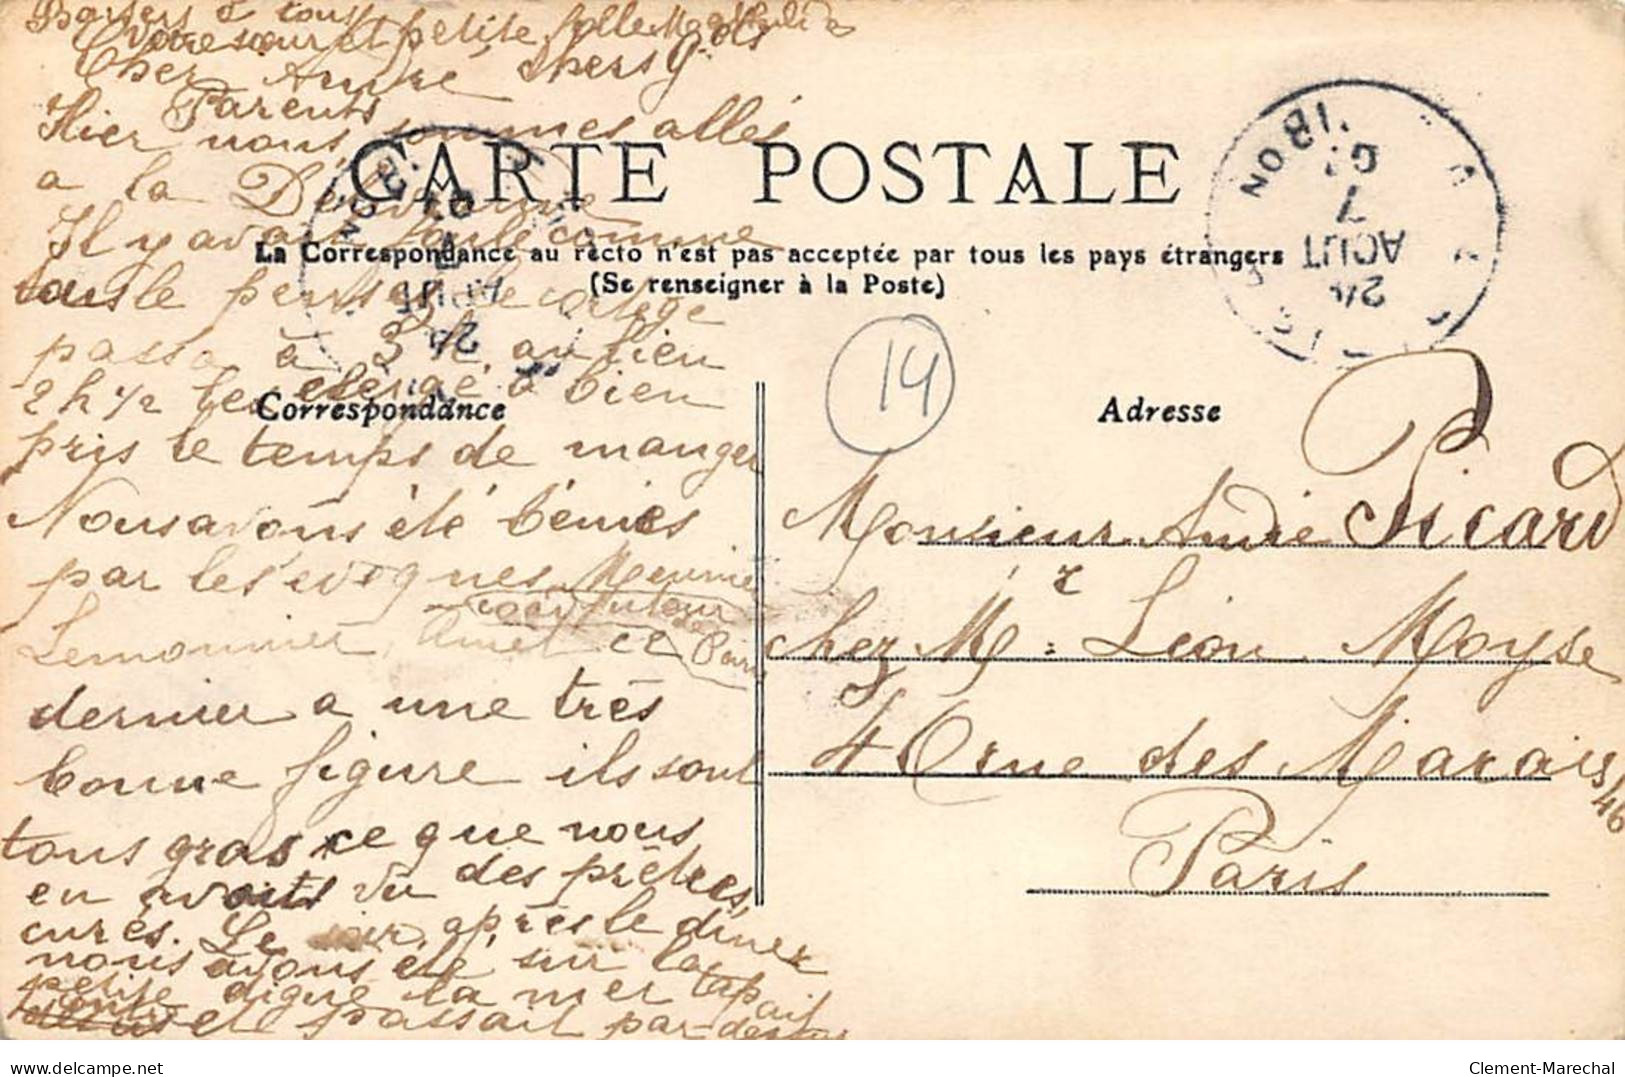 Baisers à tous
Votre sœur et petite folle
Cher André, chers
Parents
Hier nous sommes allés
a la Délivrande
Il y avait foule comme
tous le pensez le cortège
passa à 3h au lieu
2h 1/2 le clergé a bien
pris le temps de manger
Nous avons été bénies
par les évêques Meunier
coadjuteur de Paris
Lemonnier, Amet ce
dernier a une très
bonne figure ils sont
tous gras ce que nous
en avons vu des prêtres,
curés. Le soir, après le diner
nous avons été sur la
petite digue la mer tapait
et passait par-dessus
CARTE POSTALE
La Correspondance au recto n'est pas acceptée par tous les pays étrangers
(Se renseigner à la Poste)
Correspondance
Adresse
14
24
AOUT
7
Monsieur André Picard
chez Mr Léon Moyse
46 rue des Marais
46
Paris
delcampe.net
Clement-Marechal